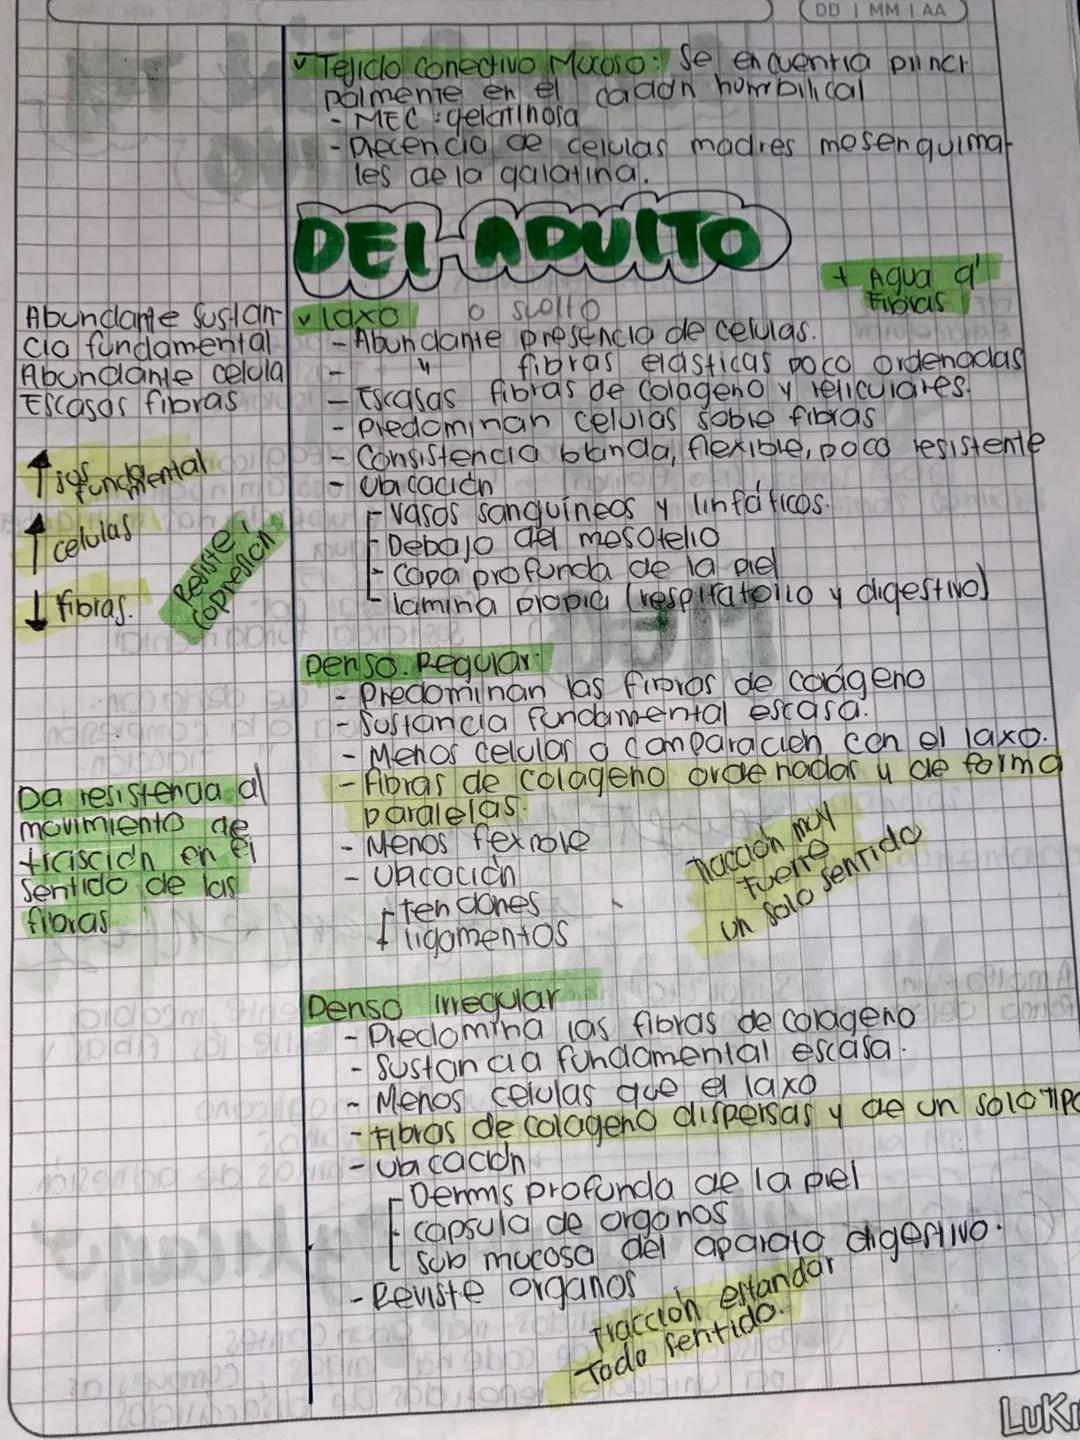 DD | MM | AA
✓ Tejido conectivo Mucoso: Se encuentra princi
palmente en el cordón humbilical
- MEC: gelatinosa
- Precencia de celulas madres mesenquima-
les de la galatina.
DEL ADULTO
+ Agua q'
Fibras
✓ laxo o suelto
- Abundante presencia de celulas.
- " fibras elasticas poco ordenadas
- Escasas fibras de colageno y reliculares.
- Predominan celulas sobre fibras
- Consistencia blanda, flexible, poco resistente
- Ubicación
- Vasos sanguíneos y linfáticos.
- Debajo del mesotelio
- Capa profunda de la piel
- lamina propia (respiratorio y digestivo)
Abundante sustan-
cia fundamental
Abundante celula
Escasas fibras
↑ fundamental
↑ celulas
↓ fibras.
Resiste
compresion
Denso Regular:
- Predominan las fibras de colágeno
- Sustancia fundamental escasa.
- Menos celulas a comparación con el laxo.
- Fibras de colageno ordenadas y de forma
paralelas.
- Menos flexible
- Ubicación
- tendones
- ligamentos
Da resistencia al
movimiento de
tracción en el
sentido de las
fibras
Tracción muy
fuerte
un solo sentido
Denso irregular
- Predomina las fibras de colageno
- Sustancia fundamental escasa.
- Menos celulas que el laxo
- Fibras de colageno dispersas y de un solo tipo
- Ubicación
- Dermis profunda de la piel
- capsula de organos
- Sub mucosa del aparato digestivo.
- Reviste organos
Tracción estandar
Todo sentido.